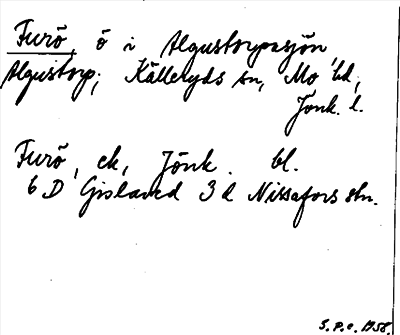 Furö, ö i Algustorpasjön,
Algustorp; Källeryds sn, Mo hd,
Jönk. l.
Furö, ek, Jönk. bl.
6 D Gislaved 3 d Nissafors stn.
S.P.e. 1958.